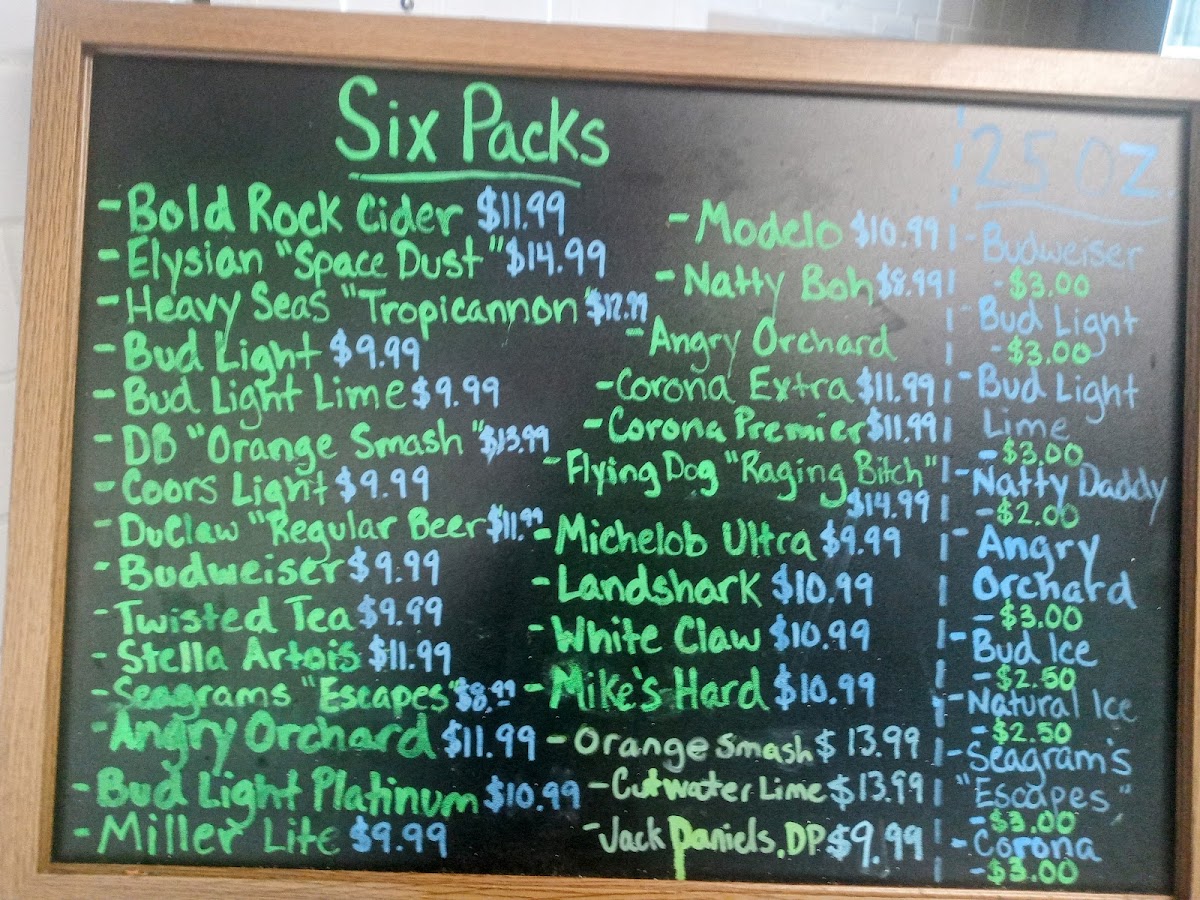 Six Packs
- Bold Rock Cider $11.99
- Elysian "Space Dust" $14.99
- Heavy Seas "Tropicannon" $12.99
- Bud Light $9.99
- Bud Light Lime $9.99
- DB "Orange Smash" $13.99
- Coors Light $9.99
- DuClaw "Regular Beer $11.99
- Budweiser $9.99
- Twisted Tea $9.99
- Stella Artois $11.99
- Seagrams "Escapes" $8.99
- Angry Orchard $11.99
- Bud Light Platinum $10.99
- Miller Lite $9.99
- Modelo $10.99
- Natty Boh $8.99
- Angry Orchard
- Corona Extra $11.99
- Corona Premier $11.99
- Flying Dog "Raging Bitch"
$14.99
- Michelob Ultra $9.99
- Landshark $10.99
- White Claw $10.99
- Mike's Hard $10.99
- Orange Smash $13.99
- Cutwater Lime $13.99
- Jack Daniels, DP $9.99
25 OZ
- Budweiser
- $3.00
- Bud Light
- $3.00
- Bud Light
Lime
- $3.00
- Natty Daddy
- $2.00
- Angry
Orchard
- $3.00
- Bud Ice
- $2.50
- Natural Ice
- $2.50
- Seagram's
"Escapes"
- $3.00
- Corona
- $3.00